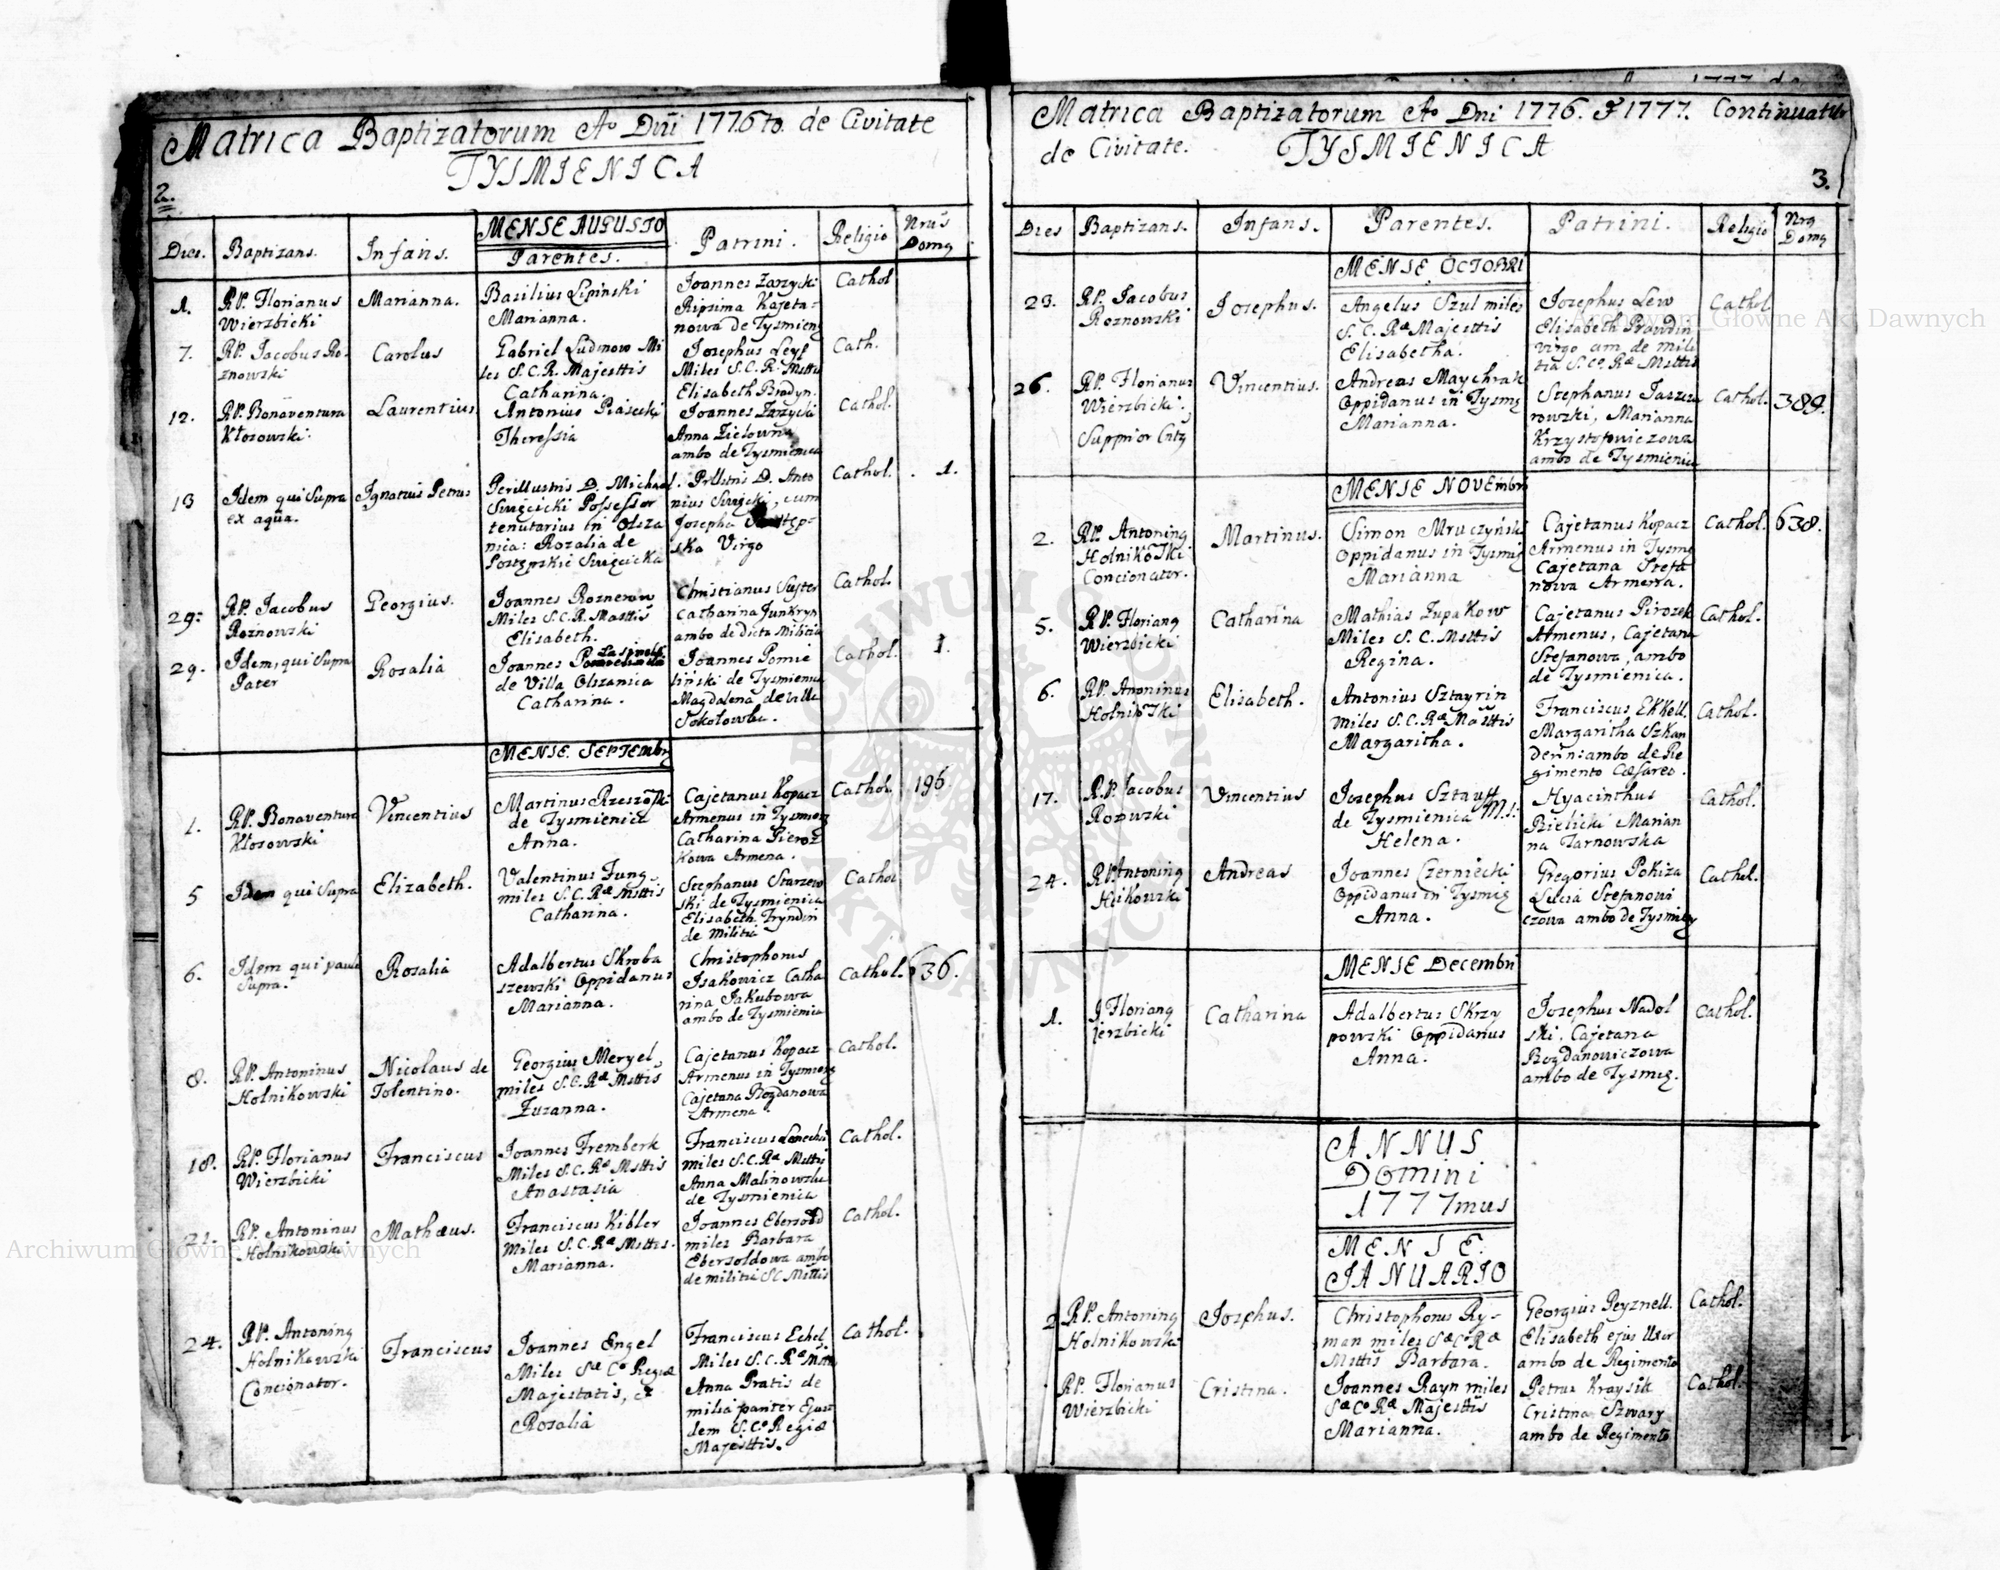 Matrica Baptizatorum Ao Dni 1776to. de Civitate
TYSMIENICA
2.
Dies.
Baptizans.
Infans.
MENSE AUGUSTO
Parentes.
Patrini.
Religio
Nrus
Domq
1.
RP. Florianus
Wierzbicki
Marianna.
Basilius Lipinski
Marianna.
Joannes Zarzycki
Ripsima Kajeta:
nowa de Tysmien
Cathol
7.
RP. Jacobus Ro-
znowski
Carolus
Gabriel Ludnow Mi
les S.C.R. Majesttis
Catharina.
Josephus Leyp
Miles S.C.R. Msttis
Elisabeth Bradyn.
Cath.
12.
RP. Bonaventura
Kłosowski.
Laurentius
Antonius Piasecki
Theressia
Joannes Zarzycki
Anna Zielowna
ambo de Tysmienica
Cathol.
13
Idem qui Supra
ex aqua.
Ignatius Petrus
Perillustris D. Michael
Swięcicki Possessor
tenutarius in Olsza
nica: Rozalia de
Postępskie Swięcicka
Prllstris D. Anto
nius Swięcki, cum
Josepha
ska Virgo
Cathol.
1.
29:
RP. Jacobus
Roznowski
Georgius.
Joannes Roznerow
Miles S.C.R. Msttis
Elisabeth.
Christianus Suster
Catharina Junkryn
ambo de dicta Militia
Cathol.
29.
Idem, qui Supra
Pater
Rosalia
Joannes
de Villa Olszanica
Catharina.
Joannes Pomie
liński de Tysmienica
Magdalena de villa
Sokolowska.
Cathol.
1.
MENSE. SEPTEmbr
1.
RP. Bonaventura
Kłosowski
Vincentius
Martinus Rzeszotski
de Tysmienica
Anna.
Cajetanus Kopacz
Armenus in Tysmieniz
Catharina Pieroz
Kowa Armena.
Cathol.
196
5
Idem qui Supra
Elizabeth.
Valentinus Jung.
miles S.C.Ræ Msttis
Catharina.
Stephanus Starzew
ski de Tysmienica
Elisabeth Fryndin
de Militia
Cathol
6.
Idem qui paulo
Supra.
Rosalia
Adalbertus Skroba
szewski Oppidanus
Marianna.
Christophorus
Isakowicz Catha
rina Jakubowa
ambo de Tysmienica
Cathol.
636.
8.
RP. Antoninus
Hołnikowski
Nicolaus de
Tolentino.
Georgius Meryel,
miles S.C.Ræ Msttis
Zuzanna.
Cajetanus Kopacz
Armenus in Tysmieniz
Cajetana Bogdanowa
Armena.
Cathol.
18.
RP. Florianus
Wierzbicki
Franciscus
Joannes Fremberk
Miles S.C.Ræ Msttis
Anastasia
Franciscus
miles S.C.Ræ Msttis
Anna Malinowska
de Tysmienica
Cathol.
21.
RP. Antoninus
Hołnikowski
Mathæus.
Franciscus Kibler
Miles S.C.Ræ Msttis.
Marianna.
Joannes Ebersold
miles Barbara
Ebersoldowa ambo
de militia SC. Msttis
Cathol.
24.
RP. Antoninq
Hołnikowski
Concionator.
Franciscus
Joannes Engel
Miles Sæ Cæ Regiæ
Majestatis, et
Rosalia
Franciscus Echel
Miles S.C.Ræ Msttis
Anna Pratis de
milia pariter Ejus
dem S.C. Regiæ
Majesttis.
Cathol.
Matrica Baptizatorum Ao Dni 1776. & 1777. Continuatur
de Civitate. TYSMIENICA
3.
Dies
Baptizans.
Infans.
Parentes.
Patrini.
Religio
Nrq
Domq
MENSE OCTOBRI
23.
RP. Jacobus
Roznowski
Josephus.
Angelus Szul miles
S.C.Ræ Majesttis
Elisabetha.
Josephus Lew
Elisabeth Prawdin
virgo am. de mili
tia S.Cæ. Ræ Msttis
Cathol
26.
RP. Florianus
Wierzbicki.
Supprior Cntq
Vincentius.
Andreas Maychrak
Oppidanus in Tysmię
Marianna.
Stephanus Jaszcu
rowski, Marianna
Krzysztofowiczowa
ambo de Tysmienica
Cathol.
389.
MENSE NOVEmbri
2.
RP. Antoninq
HołnikoSki
Concionator.
Martinus.
Simon Mruczyński
Oppidanus in Tysmię
Marianna
Cajetanus Kopacz
Armenus in Tysmę
Cajetana Stefa
nowa Armena.
Cathol.
638.
5.
RP. Florianq
Wierzbicki
Catharina
Mathias Zupakow
Miles S.C. Msttis
Regina.
Cajetanus Pirozek
Armenus, Cajetana
Stefanowa, ambo
de Tysmienica.
Cathol.
6.
RP. Anoninus
HołnikoSki
Elisabeth.
Antonius Sztayrin
miles S.C.Ræ Msttis
Margaritha.
Franciscus Ekkell.
Margaritha Szkan
derin: ambo de Re
gimento Cæsareo.
Cathol.
17.
R.P. Jacobus
Rozwski
Vincentius
Josephus Sztauff
de Tysmienica M.s:
Helena.
Hyacinthus
Bielicki Marian
na Tarnowska
Cathol.
24.
RP. Antoninq
Hołkowski
Andreas
Joannes Czerniecki
Oppidanus in Tysmię
Anna.
Gregorius Pokiza
Lucia Stefanowi
czowa ambo de Tysmięy
Cathol.
MENSE Decembri
1.
Florianq
ierzbicki
Catharina
Adalbertus Skrzy
powski Oppidanus
Anna.
Josephus Nadol
ski. Cajetana
Bogdanowiczowa
ambo de Tysmię.
Cathol.
ANNUS
Domini
1777mus
MENSE.
JANUARIO
2
RP. Antoninq
Hołnikowski
Josephus.
Christophorus Ry-
man miles Sæ Cæ Ræ
Msttis Barbara.
Georgius Reyznell.
Elisabeth ejus Uxor
ambo de Regimento
Cathol.
RP. Florianus
Wierzbicki
Cristina.
Joannes Rayn miles
Sæ Cæ Ræ Majesttis
Marianna.
Petrus Kraysik
Cristina Szwary
ambo de Regimento
Cathol.
Archiwum Główne Akt Dawnych
Archiwum Główne Akt Dawnych
ARCHIWUM GŁÓWNE AKT DAWNYCH